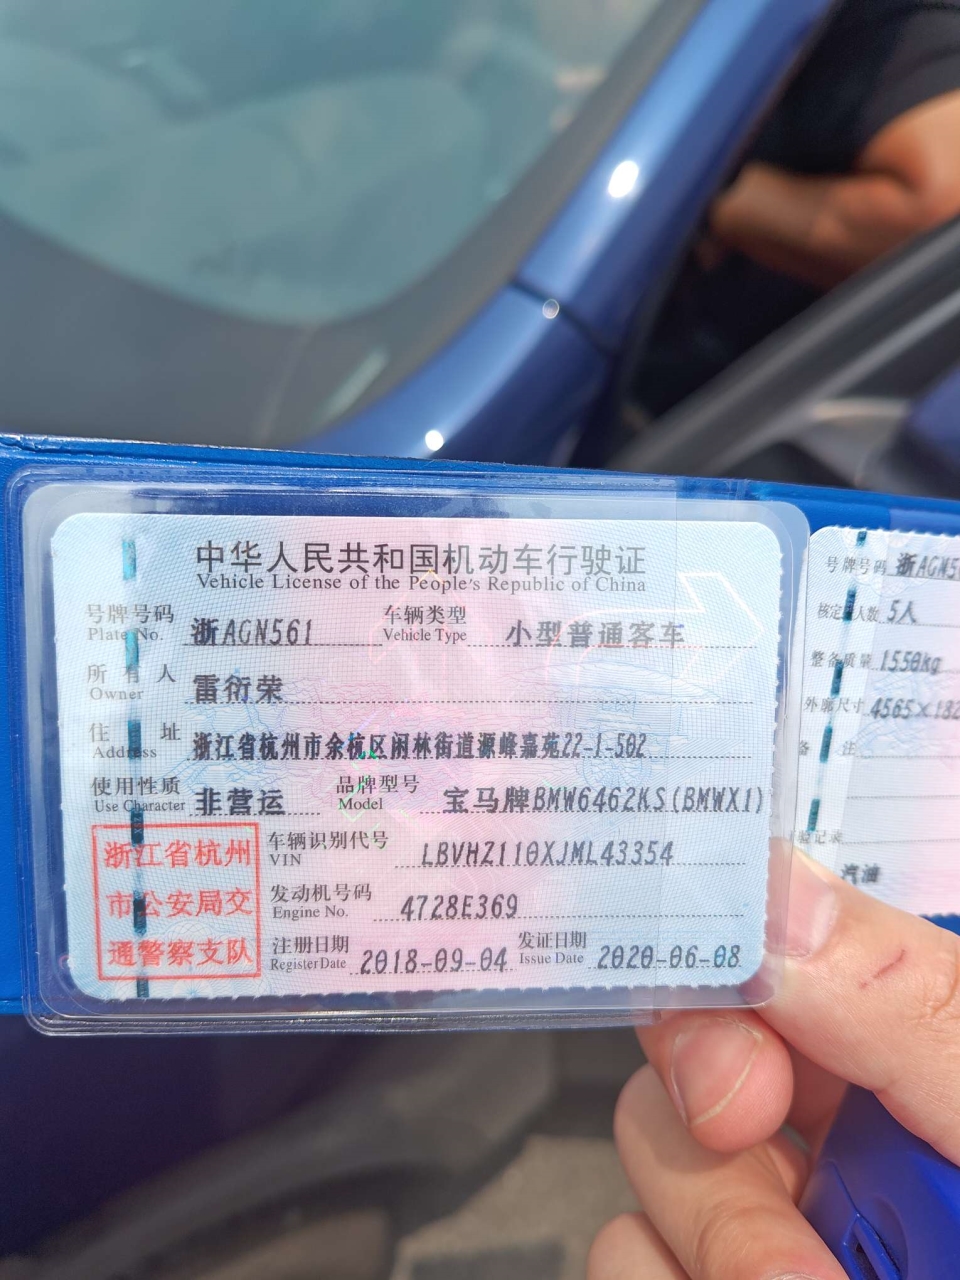 中华人民共和国机动车行驶证
Vehicle License of the People's Republic of China
号牌号码 浙AGN561 车辆类型 小型普通客车
Plate No. Vehicle Type
所有人 雷衍荣
Owner
住址 浙江省杭州市余杭区闲林街道源峰嘉苑22-1-502
Address
使用性质 非营运 品牌型号 宝马牌BMW6462KS(BMWX1)
Use Character Model
浙江省杭州
市公安局交
通警察支队
车辆识别代号 LBVHZ110XJML43354
VIN
发动机号码 4728E369
Engine No.
注册日期 2018-09-04 发证日期 2020-06-08
Register Date Issue Date
号牌号码 浙AGN5
核定人数 5人
整备质量 1550kg
外廓尺寸 4565×182
备注
验记录
汽油